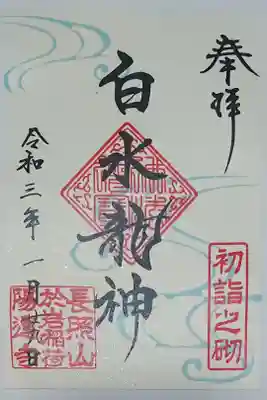 奉拝
初詣之砌
白水龍神
令和三年一月
長照山
於岩稲荷
陽運寺